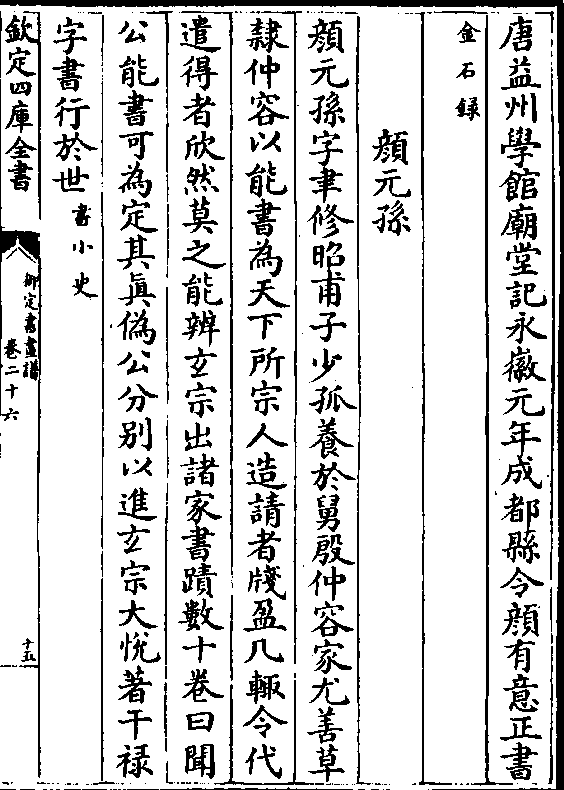 唐益州學館廟堂記永徽元年成都縣令顔有意正書
金石録
顔元孫
顔元孫字聿修昭甫子少孤養於舅殷仲容家尤善草
隸仲容以能書為天下所宗人造請者牋盈几輙令代
遣得者欣然莫之能辨玄宗出諸家書蹟數十卷曰聞
公能書可為定其真偽公分别以進玄宗大悅著干禄
字書行於世書小史
欽定四庫全書
御定書畫譜
卷二十六
十五